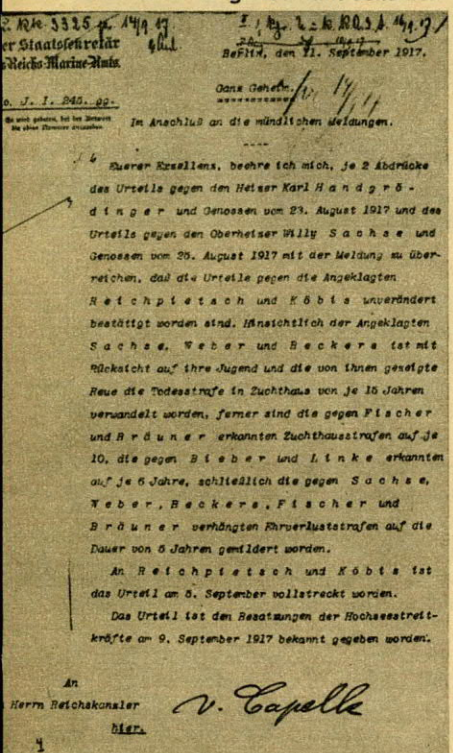 3325 14/9 17
er Staatssekretär
s Reichs-Marine-Amts.
Berlin, den 11. September 1917.
Ganz Geheim.
o. J. I. 245. gg.
Es wird gebeten, bei der Antwort
die obige Nummer anzugeben
Im Anschluß an die mündlichen Meldungen.
Euerer Exzellenz, beehre ich mich, je 2 Abdrücke
des Urteils gegen den Heizer Karl Handgrö-
dinger und Genossen vom 23. August 1917 und des
Urteils gegen den Oberheizer Willy Sachse und
Genossen vom 25. August 1917 mit der Meldung zu über-
reichen, daß die Urteile gegen die Angeklagten
Reichpietsch und Köbis unverändert
bestätigt worden sind. Hinsichtlich der Angeklagten
Sachse, Weber und Beckers ist mit
Rücksicht auf ihre Jugend und die von ihnen gezeigte
Reue die Todesstrafe in Zuchthaus von je 15 Jahren
verwandelt worden, ferner sind die gegen Fischer
und Bräuner erkannten Zuchthausstrafen auf je
10, die gegen Bieber und Linke erkannten
auf je 6 Jahre, schließlich die gegen Sachse,
Weber, Beckers, Fischer und
Bräuner verhängten Ehrverluststrafen auf die
Dauer von 5 Jahren gemildert worden.
An Reichpietsch und Köbis ist
das Urteil am 5. September vollstreckt worden.
Das Urteil ist den Besatzungen der Hochseestreit-
kräfte am 9. September 1917 bekannt gegeben worden.
An
Herrn Reichskanzler
hier.
v. Capelle